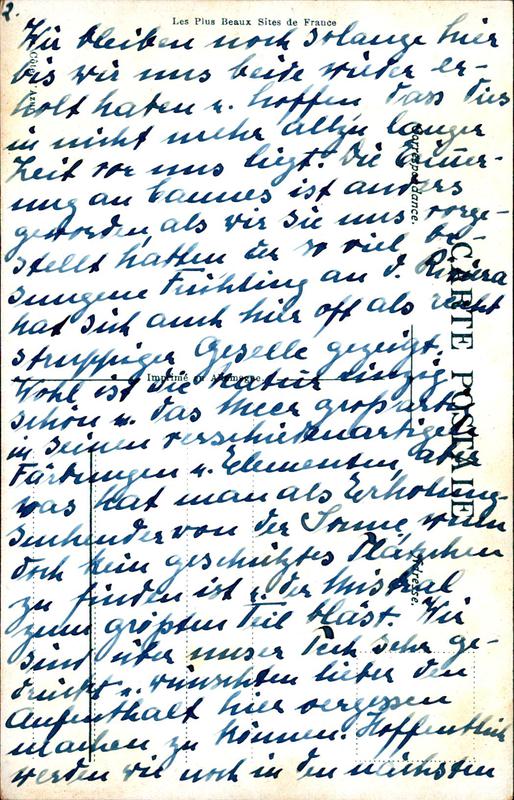 2.
Les Plus Beaux Sites de France
Wir bleiben noch solange hier
bis wir uns beide wieder er-
holt haben u. hoffen, dass dies
in nicht mehr allzu langer
Zeit vor uns liegt. Die Erinner-
ung an Cannes ist anders
geworden, als wir sie uns vorge-
stellt hatten der so viel be-
sungene Frühling an d. Riviera
hat sich auch hier oft als recht
struppiger Geselle gezeigt.
Wohl ist die Natur einzig
schön u. das Meer großartig
in seinen verschiedenartigen
Färbungen u. Elementen, aber
was hat man als Erholung-
suchender von der Sonne, wenn
doch kein geschütztes Plätzchen
zu finden ist u. der Mistral
zum größten Teil bläst. Wir
sind über unser Pech sehr ge-
drückt u. wünschten lieber den
Aufenthalt hier vergessen
machen zu können. Hoffentlich
werden wir noch in den nächsten
Imprimé en Allemagne.
CARTE POSTALE
Correspondance.
Adresse.